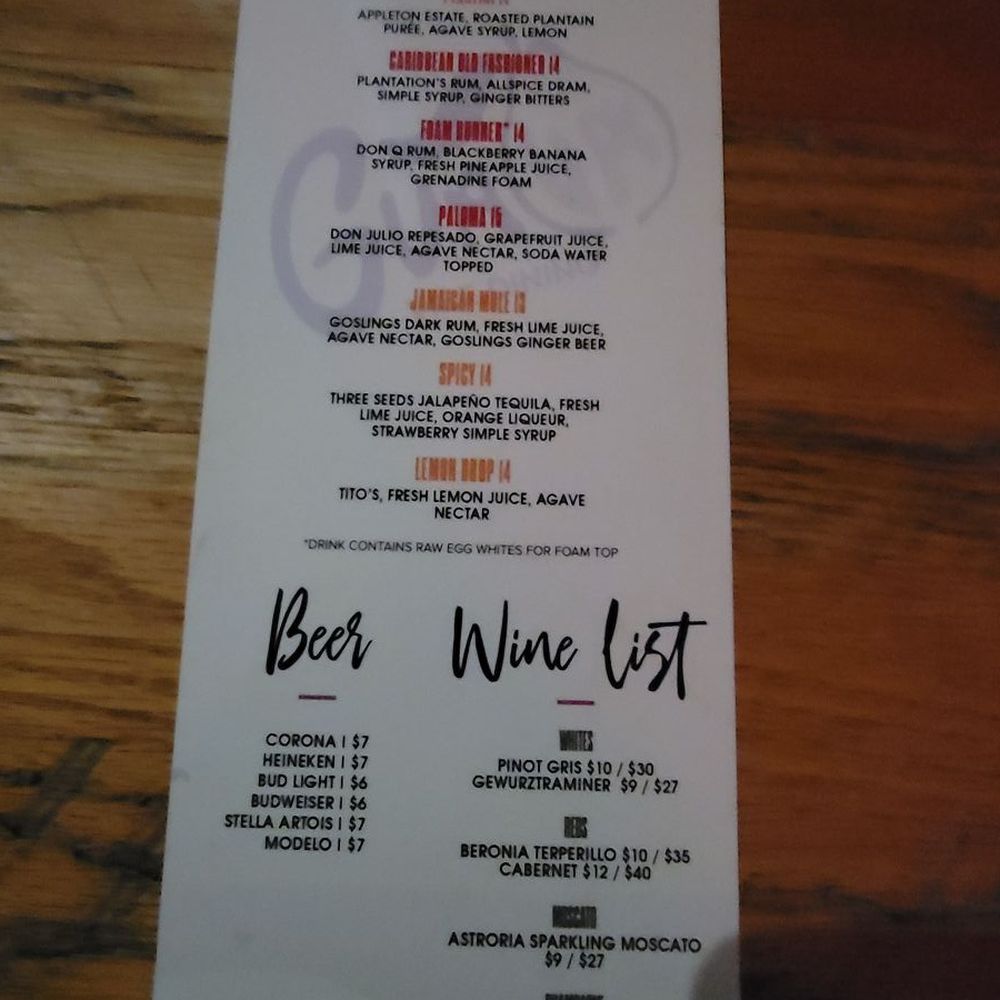 APPLETON ESTATE, ROASTED PLANTAIN
PURÉE, AGAVE SYRUP, LEMON
CARIBBEAN OLD FASHIONED 14
PLANTATION'S RUM, ALLSPICE DRAM,
SIMPLE SYRUP, GINGER BITTERS
FOAM RUNNER* 14
DON Q RUM, BLACKBERRY BANANA
SYRUP, FRESH PINEAPPLE JUICE,
GRENADINE FOAM
PALOMA 15
DON JULIO REPESADO, GRAPEFRUIT JUICE,
LIME JUICE, AGAVE NECTAR, SODA WATER
TOPPED
JAMAICAN MULE 13
GOSLINGS DARK RUM, FRESH LIME JUICE,
AGAVE NECTAR, GOSLINGS GINGER BEER
SPICY 14
THREE SEEDS JALAPEÑO TEQUILA, FRESH
LIME JUICE, ORANGE LIQUEUR,
STRAWBERRY SIMPLE SYRUP
LEMON DROP 14
TITO'S, FRESH LEMON JUICE, AGAVE
NECTAR
*DRINK CONTAINS RAW EGG WHITES FOR FOAM TOP
Beer
CORONA | $7
HEINEKEN | $7
BUD LIGHT | $6
BUDWEISER | $6
STELLA ARTOIS | $7
MODELO | $7
Wine list
WHITES
PINOT GRIS $10 / $30
GEWURZTRAMINER $9 / $27
REDS
BERONIA TERPERILLO $10 / $35
CABERNET $12 / $40
MOSCATO
ASTRORIA SPARKLING MOSCATO
$9 / $27